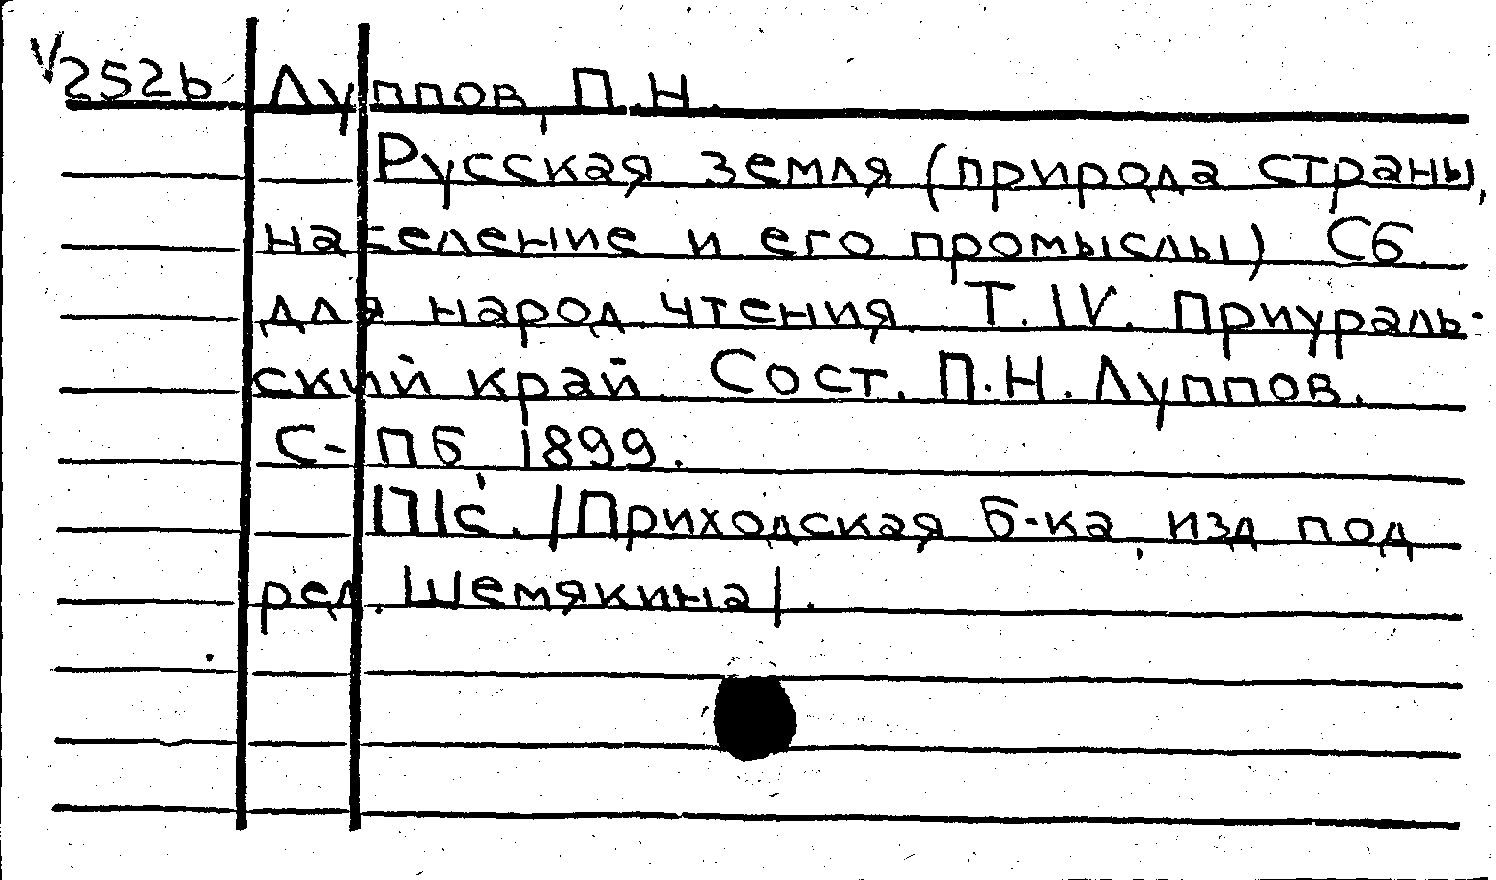 V252b Луппов, П.Н.
Русская земля (природа страны,
население и его промыслы) Сб.
для народ. чтения. Т. IV. Приураль-
ский край. Сост. П.Н. Луппов.
С-Пб, 1899.
П|с. /Приходская б-ка, изд под
ред. Шемякина|.